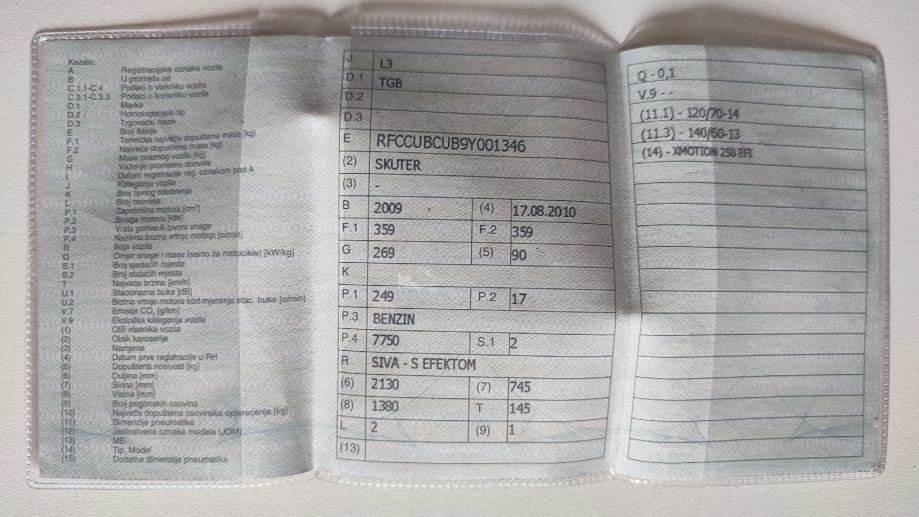 Kazalo:
A Registracijska oznaka vozila
B U prometu od
C.1.1-C.4 Podaci o vlasniku vozila
C.3.1-C.3.3 Podaci o korisniku vozila
D.1 Marka
D.2 Homologacijski tip
D.3 Trgovački naziv
E Broj šasije
F.1 Tehnička najveća dopuštena masa [kg]
F.2 Najveća dopuštena masa [kg]
G Masa praznog vozila [kg]
H Važenje prometne dozvole
I Datum registracije reg. oznakom pod A
J Kategorija vozila
K Broj tipnog odobrenja
L Broj osovina
P.1 Zapremina motora [cm³]
P.2 Snaga motora [kW]
P.3 Vrsta goriva ili izvora snage
P.4 Nazivna brzina vrtnje motora [o/min]
R Boja vozila
Q Omjer snage i mase (samo za motocikle) [kW/kg]
S.1 Broj sjedećih mjesta
S.2 Broj stajaćih mjesta
T Najveća brzina [km/h]
U.1 Stacionarna buka [dB]
U.2 Brzina vrtnje motora kod mjerenja stac. buke [o/min]
V.7 Emisija CO₂ [g/km]
V.9 Ekološka kategorija vozila
(1) OIB vlasnika vozila
(2) Oblik karoserije
(3) Namjena
(4) Datum prve registracije u RH
(5) Dopuštena nosivost [kg]
(6) Duljina [mm]
(7) Širina [mm]
(8) Visina [mm]
(9) Broj pogonskih osovina
(10) Najveća dopuštena osovinska opterećenja [kg]
(11) Dimenzije pneumatika
(12) Jedinstvena oznaka modela (JOM)
(13) MB
(14) Tip, Model
(15) Dodatne dimenzije pneumatika
J L3
D.1 TGB
D.2
D.3
E RFCCUBCUB9Y001346
(2) SKUTER
(3) -
B 2009 (4) 17.08.2010
F.1 359 F.2 359
G 269 (5) 90
K
P.1 249 P.2 17
P.3 BENZIN
P.4 7750 S.1 2
R SIVA - S EFEKTOM
(6) 2130 (7) 745
(8) 1380 T 145
L 2 (9) 1
(13)
Q - 0,1
V.9 - -
(11.1) - 120/70-14
(11.3) - 140/60-13
(14) - XMOTION 250 EFI